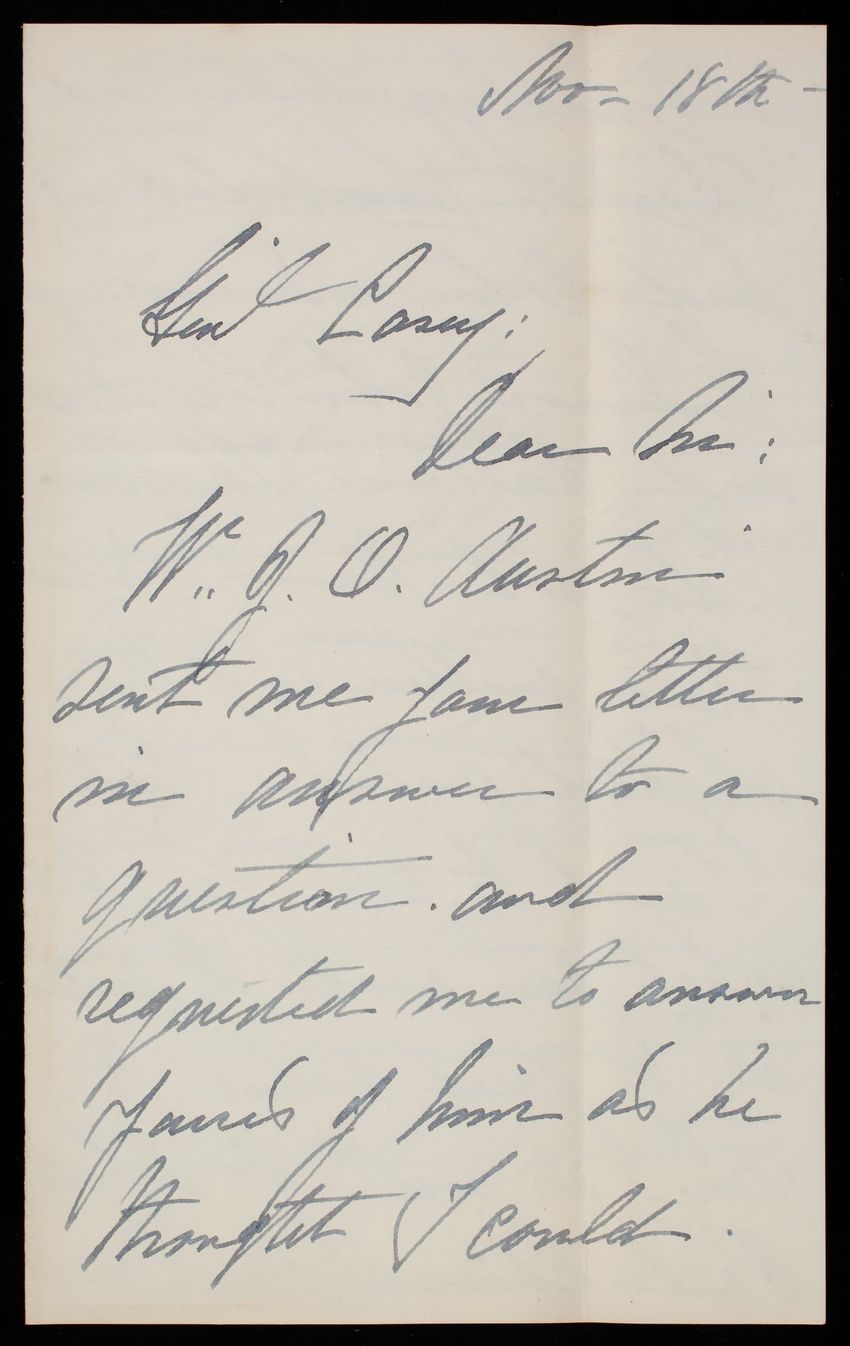 Nov 18th -
Gen'l Casey:
Dear Sir:
W. J. O. Austin
sent me your letter
in answer to a
question. and
requested me to answer
yours of him as he
thought I could.